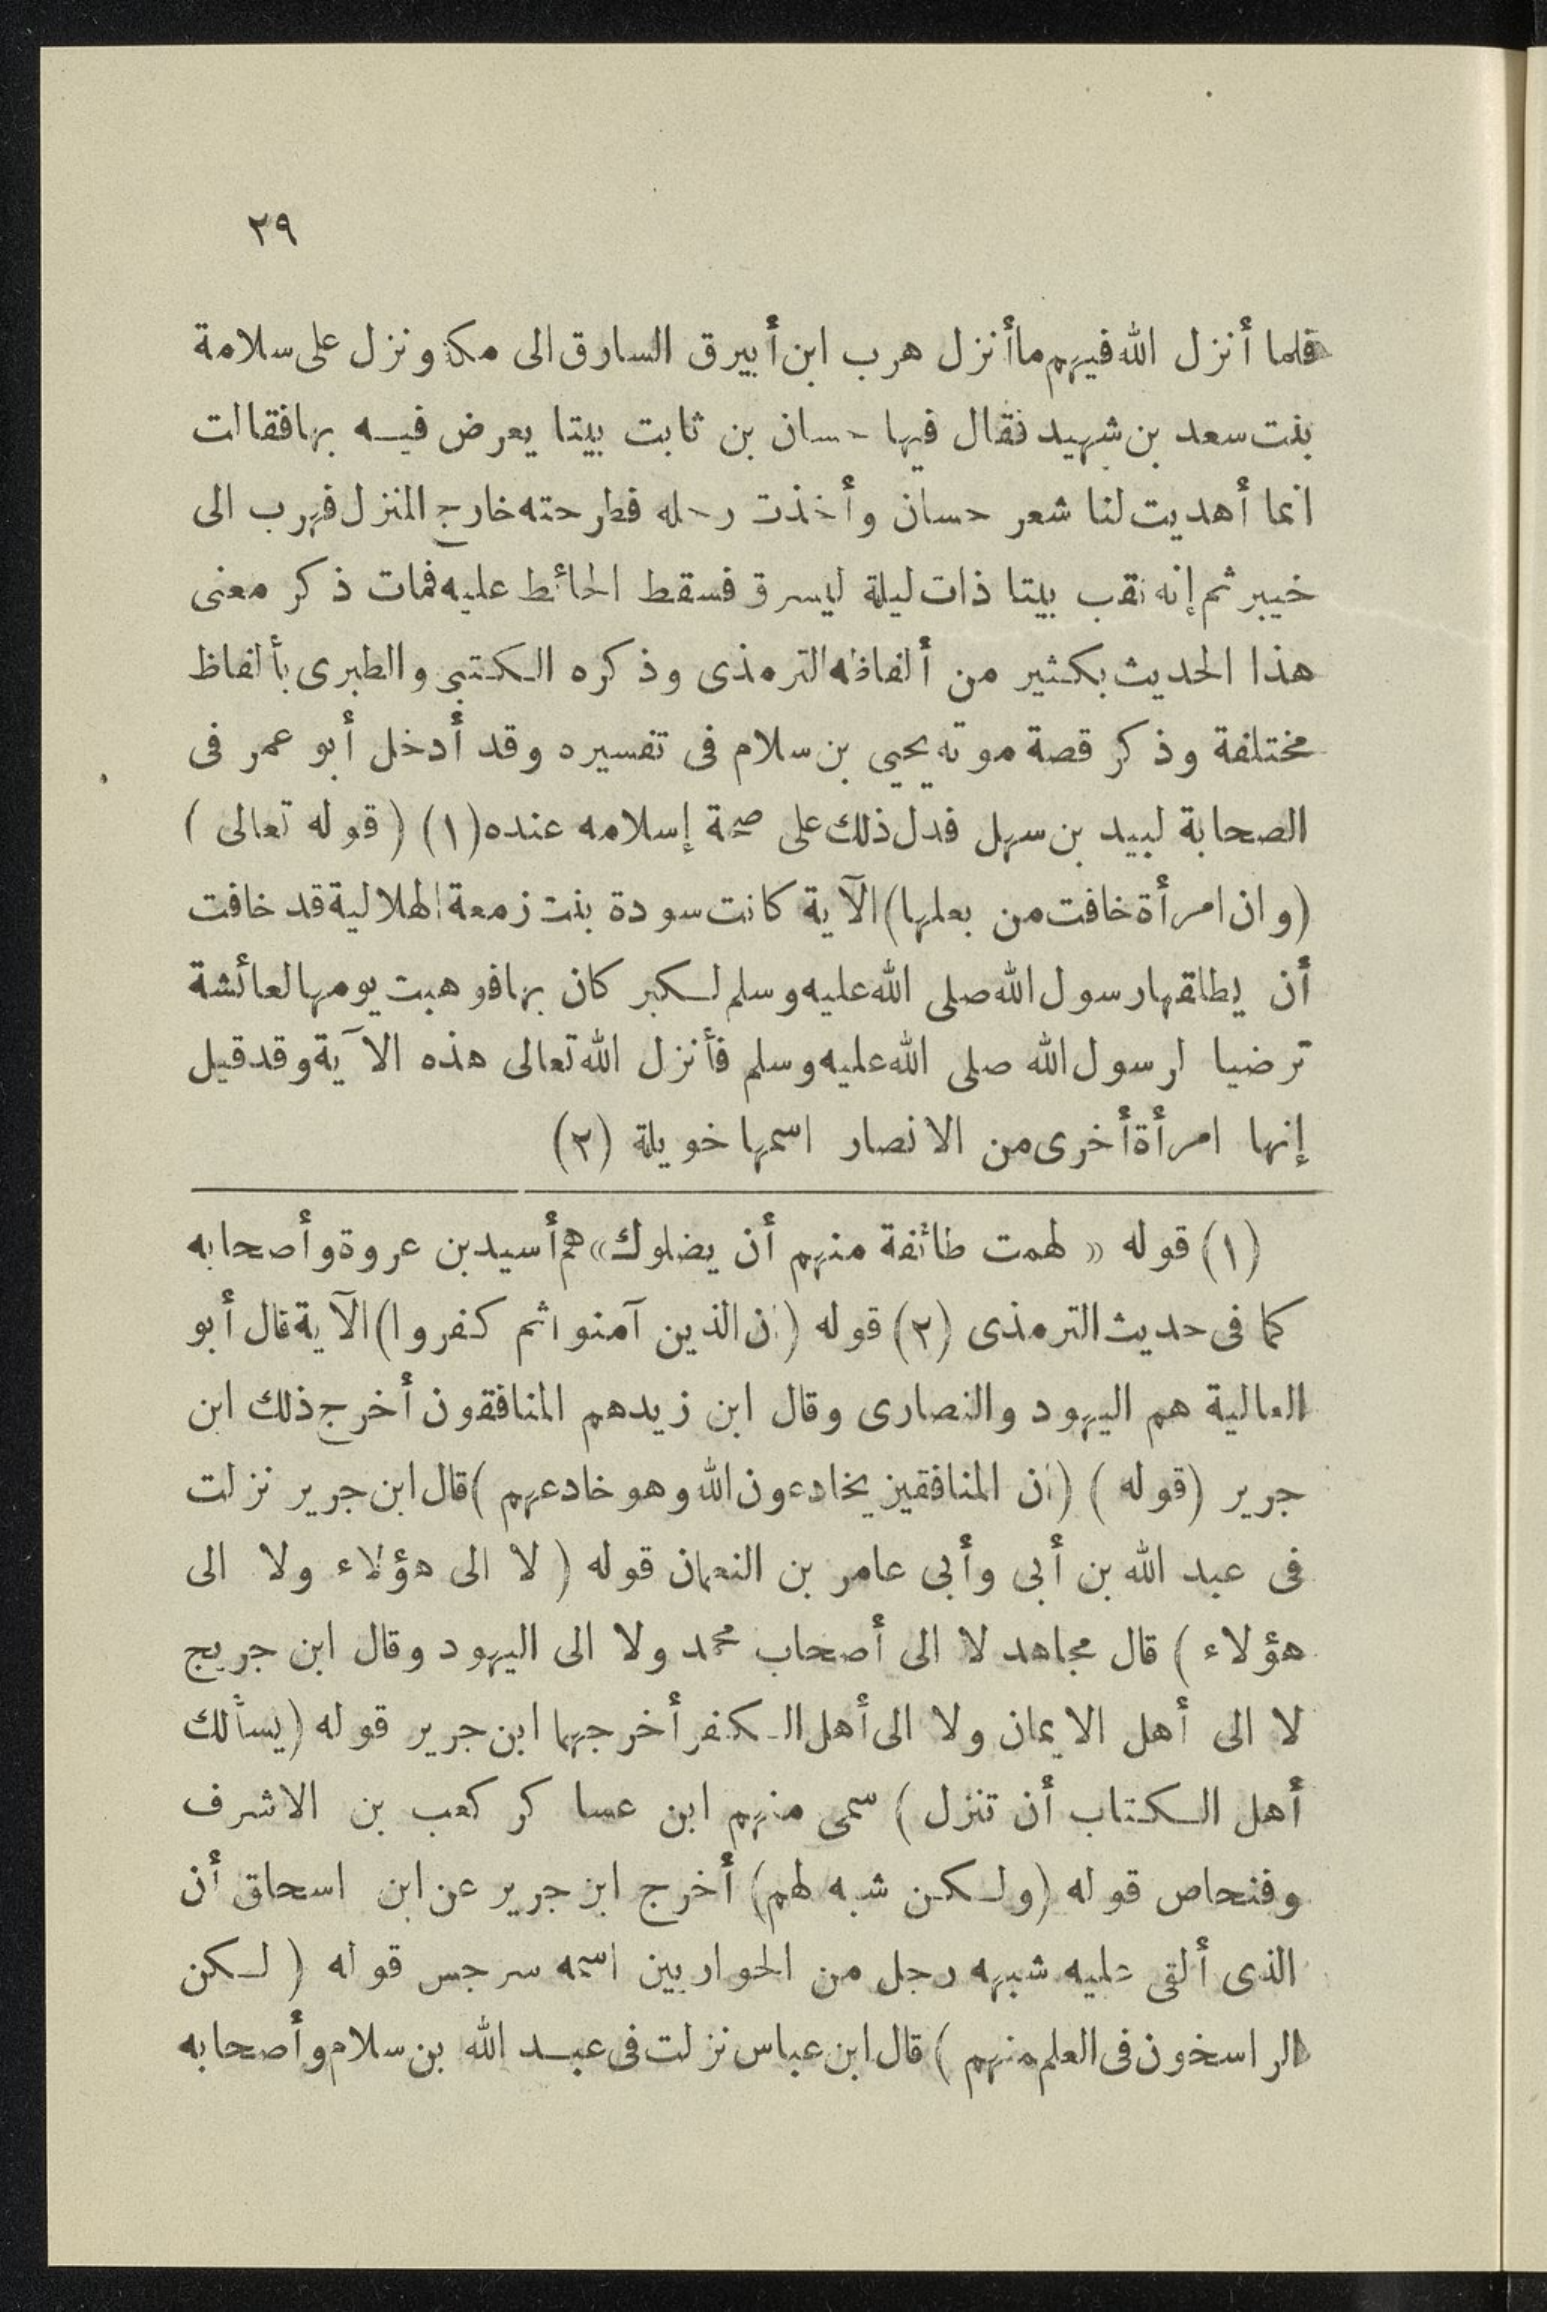 ٢٩
فلما أنزل الله فيهم ما أنزل هرب ابن أبيرق السارق الى مكة ونزل على سلامة
بنت سعد بن شهيد فقال فيها حسان بن ثابت بيتا يعرض فيه بها فقالت
انما أهديت لنا شعر حسان وأخذت رحله فطرحته خارج المنزل فهرب الى
خيبر ثم إنه نقب بيتا ذات ليلة ليسرق فسقط الحائط عليه فمات ذكر معنى
هذا الحديث بكثير من ألفاظه الترمذى وذكره الكتبى والطبرى بألفاظ
مختلفة وذكر قصة موته يحيى بن سلام فى تفسيره وقد أدخل أبو عمر فى
الصحابة لبيد بن سهل فدل ذلك على صحة إسلامه عنده (١) ( قوله تعالى )
(وان امرأة خافت من بعلها) الآية كانت سودة بنت زمعة الهلالية قد خافت
أن يطلقها رسول الله صلى الله عليه وسلم لكبر كان بها فوهبت يومها لعائشة
ترضيا لرسول الله صلى الله عليه وسلم فأنزل الله تعالى هذه الآية وقد قيل
إنها امرأة أخرى من الانصار اسمها خويلة (٢)
(١) قوله « لهمت طائفة منهم أن يضلوك» هم أسيد بن عروة وأصحابه
كما فى حديث الترمذى (٢) قوله (ان الذين آمنوا ثم كفروا) الآية قال أبو
العالية هم اليهود والنصارى وقال ابن زيد هم المنافقون أخرج ذلك ابن
جرير (قوله ) (ان المنافقين يخادعون الله وهو خادعهم ) قال ابن جرير نزلت
فى عبد الله بن أبى وأبى عامر بن النعمان قوله ( لا الى هؤلاء ولا الى
هؤلاء ) قال مجاهد لا الى أصحاب محمد ولا الى اليهود وقال ابن جريج
لا الى أهل الايمان ولا الى أهل الكفر أخرجهما ابن جرير قوله (يسألك
أهل الكتاب أن تنزل ) سمى منهم ابن عساكر كعب بن الاشرف
وفنحاص قوله (ولكن شبه لهم) أخرج ابن جرير عن ابن اسحاق أن
الذى ألقى عليه شبهه رجل من الحواريين اسمه سرجس قوله ( لكن
الراسخون فى العلم منهم ) قال ابن عباس نزلت فى عبد الله بن سلام وأصحابه